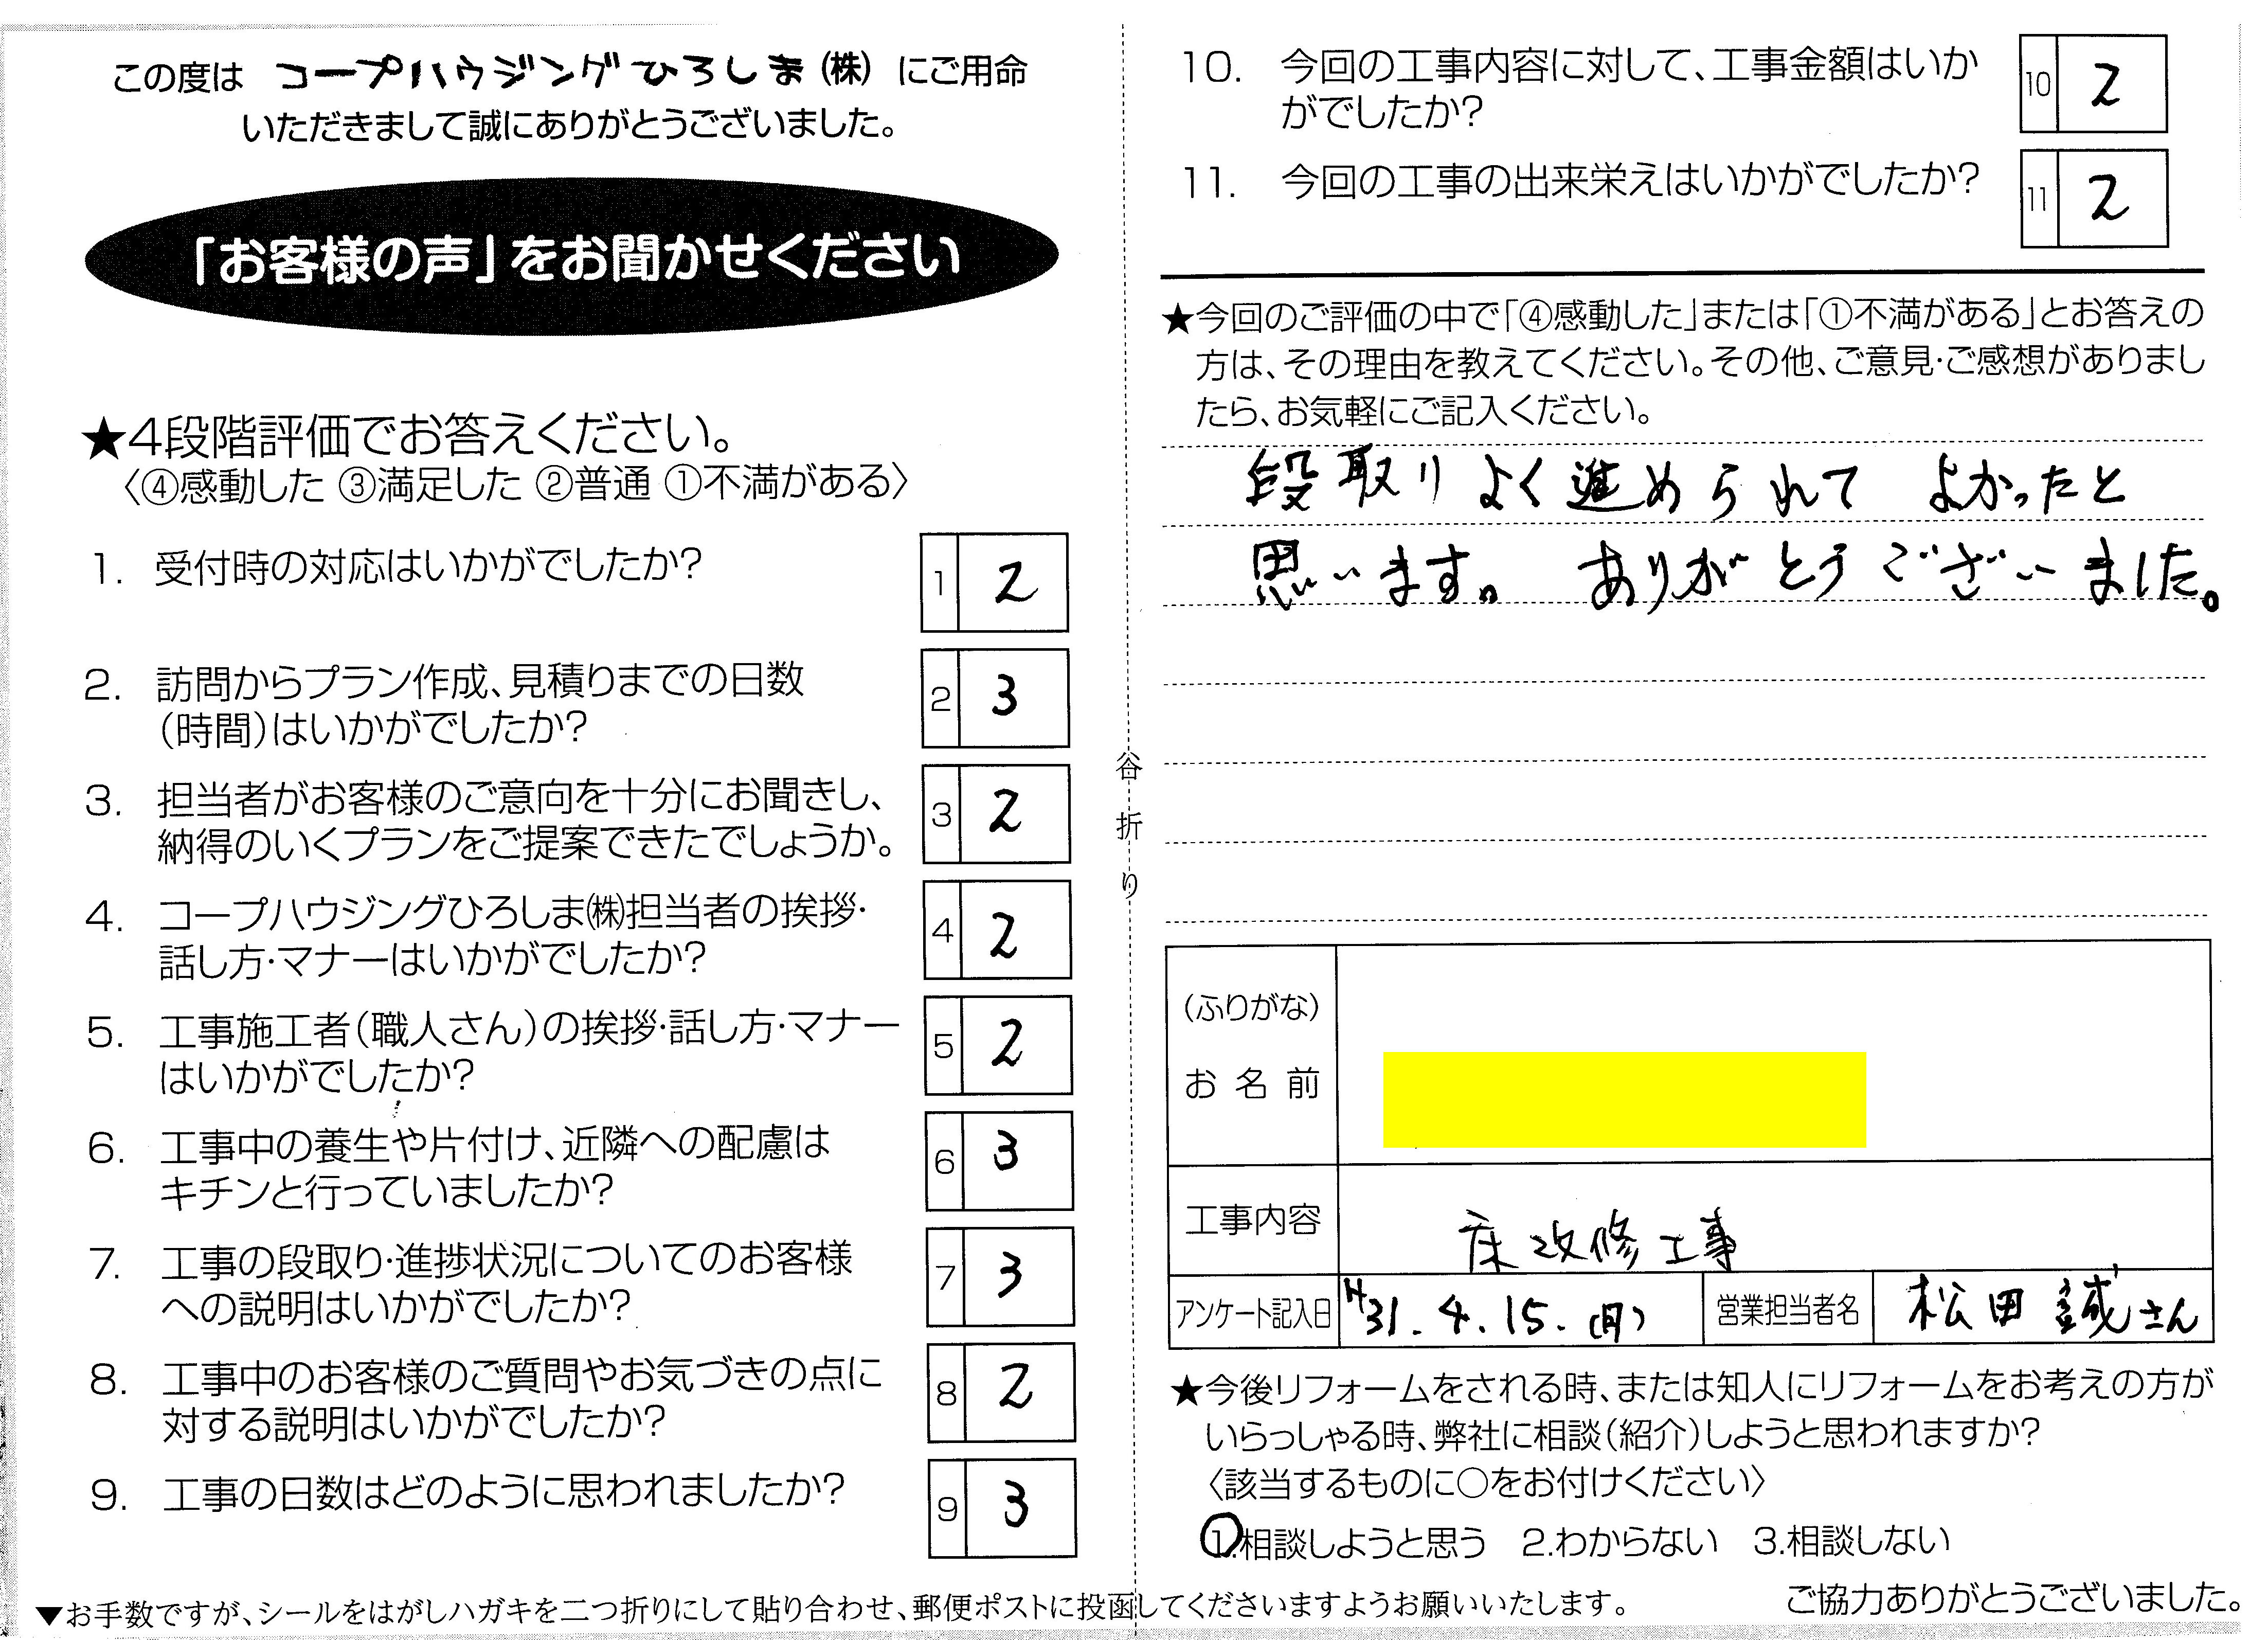 この度は コープハウジングひろしま(株) にご用命
いただきまして誠にありがとうございました。
「お客様の声」をお聞かせください
★4段階評価でお答えください。
〈④感動した ③満足した ②普通 ①不満がある〉
1. 受付時の対応はいかがでしたか? 1 2
2. 訪問からプラン作成、見積りまでの日数
(時間)はいかがでしたか? 2 3
3. 担当者がお客様のご意向を十分にお聞きし、
納得のいくプランをご提案できたでしょうか。 3 2
4. コープハウジングひろしま㈱担当者の挨拶・
話し方・マナーはいかがでしたか? 4 2
5. 工事施工者(職人さん)の挨拶・話し方・マナー
はいかがでしたか? 5 2
6. 工事中の養生や片付け、近隣への配慮は
キチンと行っていましたか? 6 3
7. 工事の段取り・進捗状況についてのお客様
への説明はいかがでしたか? 7 3
8. 工事中のお客様のご質問やお気づきの点に
対する説明はいかがでしたか? 8 2
9. 工事の日数はどのように思われましたか? 9 3
▼お手数ですが、シールをはがしハガキを二つ折りにして貼り合わせ、郵便ポストに投函してくださいますようお願いいたします。
谷折り
10. 今回の工事内容に対して、工事金額はいか
がでしたか? 10 2
11. 今回の工事の出来栄えはいかがでしたか? 11 2
★今回のご評価の中で「④感動した」または「①不満がある」とお答えの
方は、その理由を教えてください。その他、ご意見・ご感想がありまし
たら、お気軽にご記入ください。
段取りよく進められて よかったと
思います。 ありがとうございました。
(ふりがな)
お名前
工事内容 床改修工事
アンケート記入日 H31.4.15.(月) 営業担当者名 松田 誠さん
★今後リフォームをされる時、または知人にリフォームをお考えの方が
いらっしゃる時、弊社に相談(紹介)しようと思われますか?
〈該当するものに○をお付けください〉
1.相談しようと思う 2.わからない 3.相談しない
ご協力ありがとうございました。